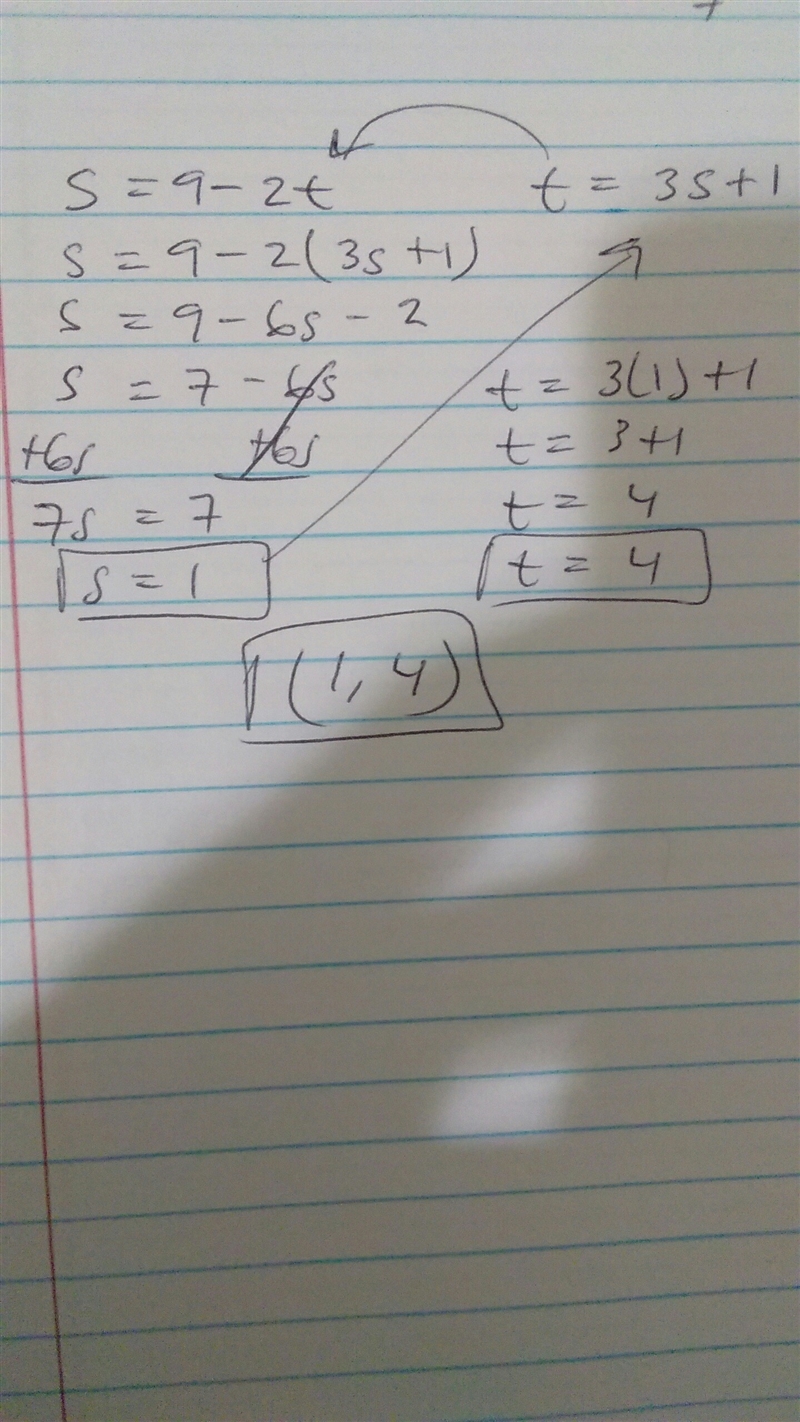 s = 9 - 2t
t = 3s + 1
s = 9 - 2(3s + 1)
s = 9 - 6s - 2
s = 7 - 6s
+6s +6s
7s = 7
s = 1
t = 3(1) + 1
t = 3 + 1
t = 4
t = 4
(1, 4)